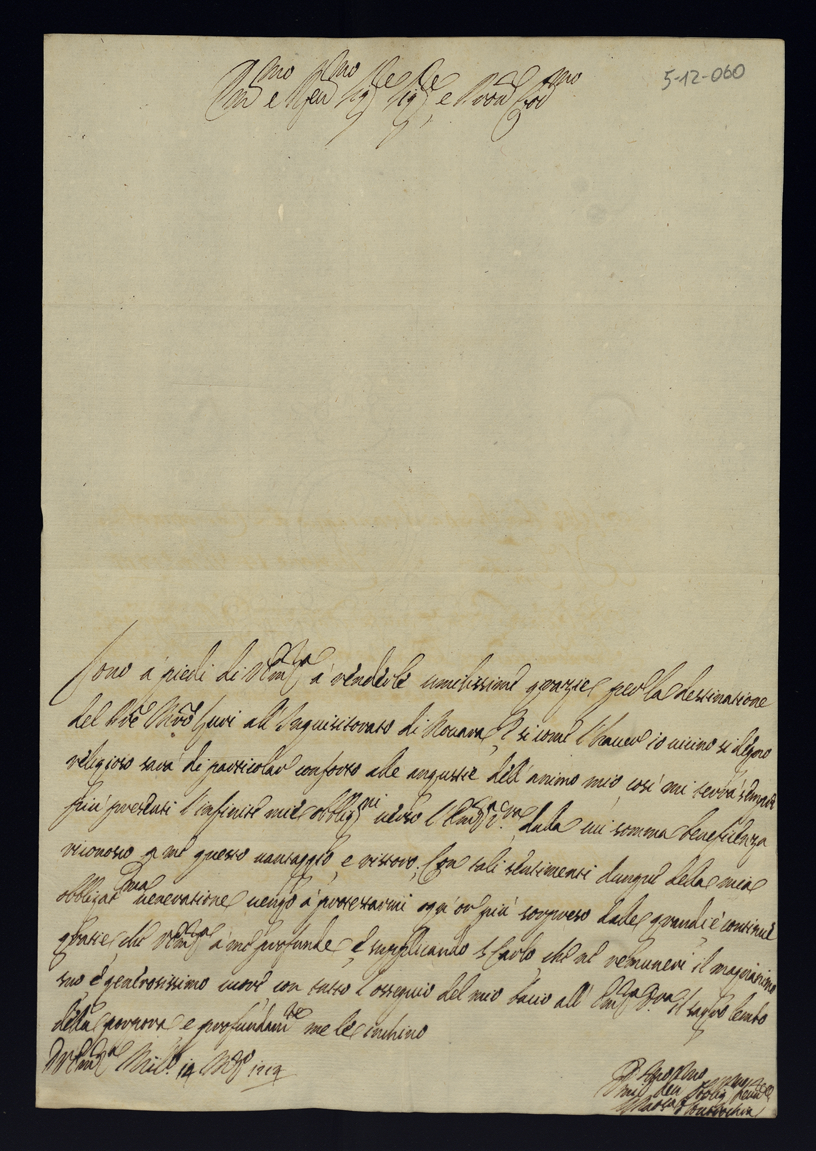 5-12-060
Em.mo e Rev.mo Sig.re Sig.re, e Pron Col.mo
Sono a' piedi di V.Em.za a' renderle umilissime grazie per la destinatione
del Pre Mro all'Inquisitorato di Novara, E si come l'haver io vicino si degno
religioso sarà di particolar conforto alle angustie dell'animo mio, così mi terrà sempre
più presenti l'infinite mie obblig.ni verso l'Em.za V.ra dalla cui somma beneficenza
riconosco a me questo vantaggio, e ristoro. Con tali sentimenti dunque della mia
obbligat.ma veneratione vengo a' protestarmi ogn'or più sorpreso dalle grandi e continue
gratie, che V.Em.za a me profonde, e supplicando S. Carlo, che ne remuneri il magnanimo
suo e generosissimo cuore con tutto l'ossequio del mio bacio all'Em.za V.ra il sagro lembo
della porpora e profundam.te me le inchino
D V.Em.za Mil.o 14 Mgo